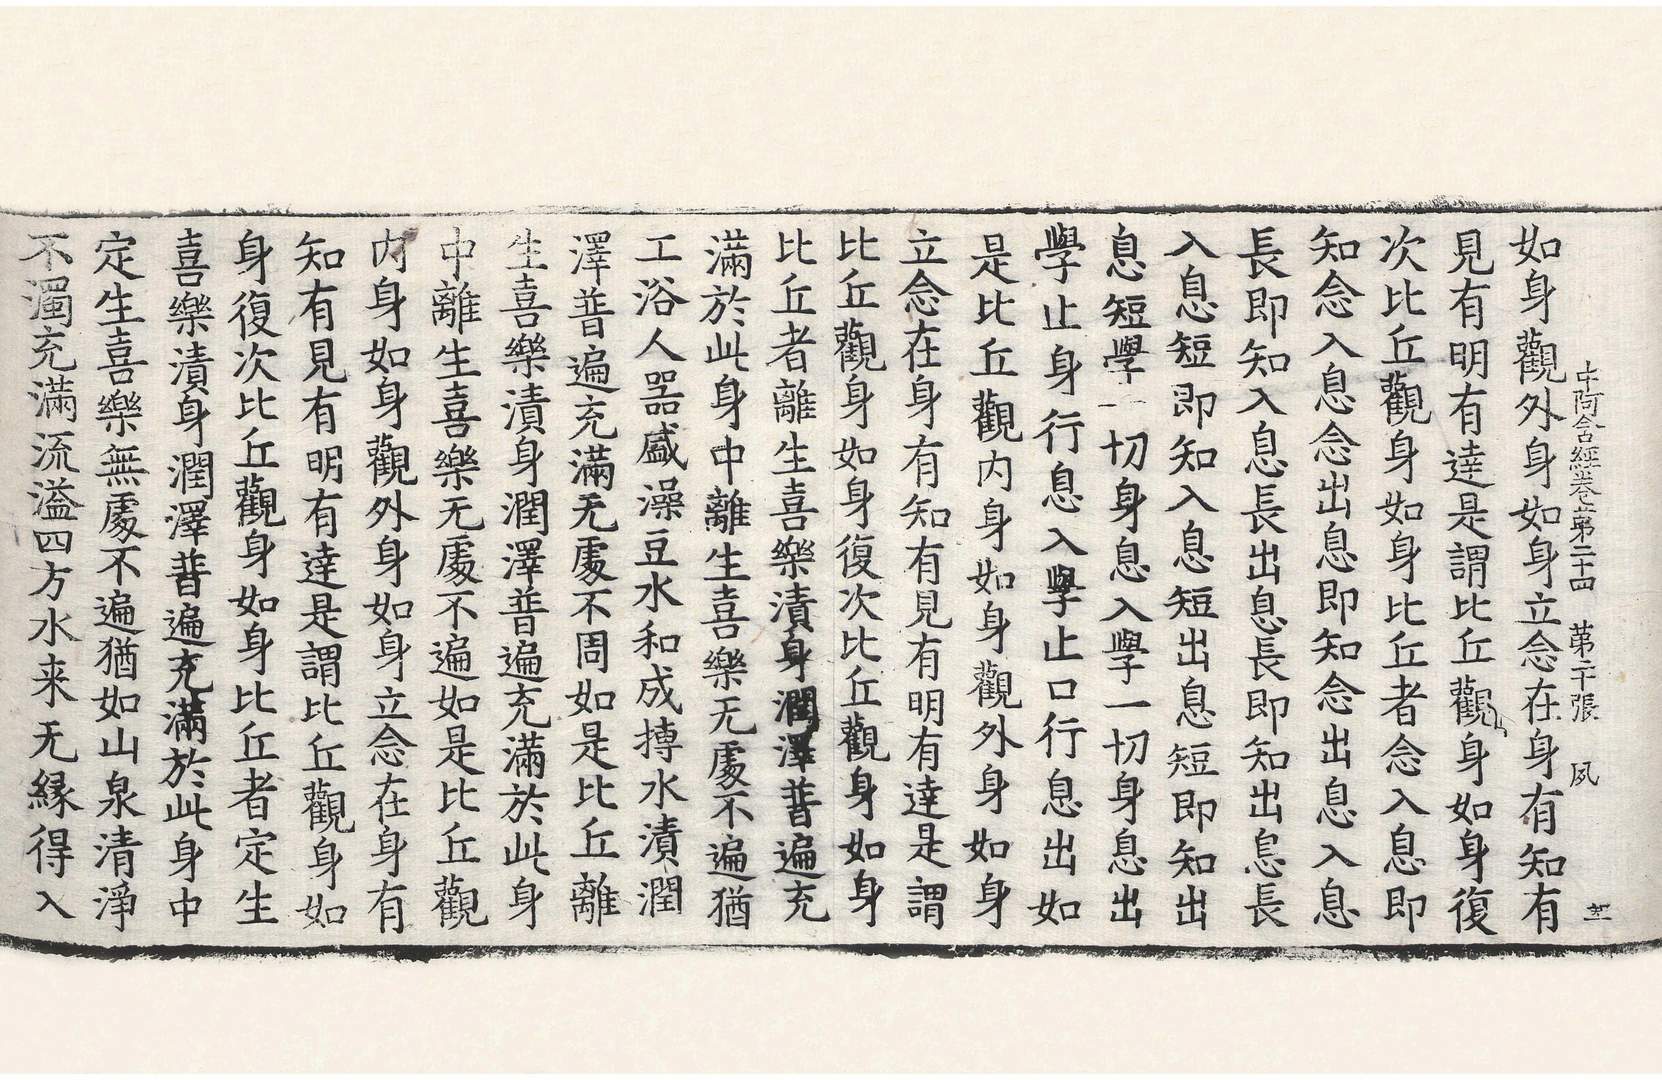 中阿含經卷第二十四　第二十張　夙
如身觀外身如身立念在身有知有
見有明有達是謂比丘觀身如身復
次比丘觀身如身比丘者念入息即
知念入息念出息即知念出息入息
長即知入息長出息長即知出息長
入息短即知入息短出息短即知出
息短學一切身息入學一切身息出
學止身行息入學止口行息出如
是比丘觀内身如身觀外身如身
立念在身有知有見有明有達是謂
比丘觀身如身復次比丘觀身如身
比丘者離生喜樂漬身潤澤普遍充
滿於此身中離生喜樂无處不遍猶
工浴人器盛澡豆水和成摶水漬潤
澤普遍充滿无處不周如是比丘離
生喜樂漬身潤澤普遍充滿於此身
中離生喜樂无處不遍如是比丘觀
内身如身觀外身如身立念在身有
知有見有明有達是謂比丘觀身如
身復次比丘觀身如身比丘者定生
喜樂漬身潤澤普遍充滿於此身中
定生喜樂無處不遍猶如山泉清淨
不濁充滿流溢四方水来无縁得入